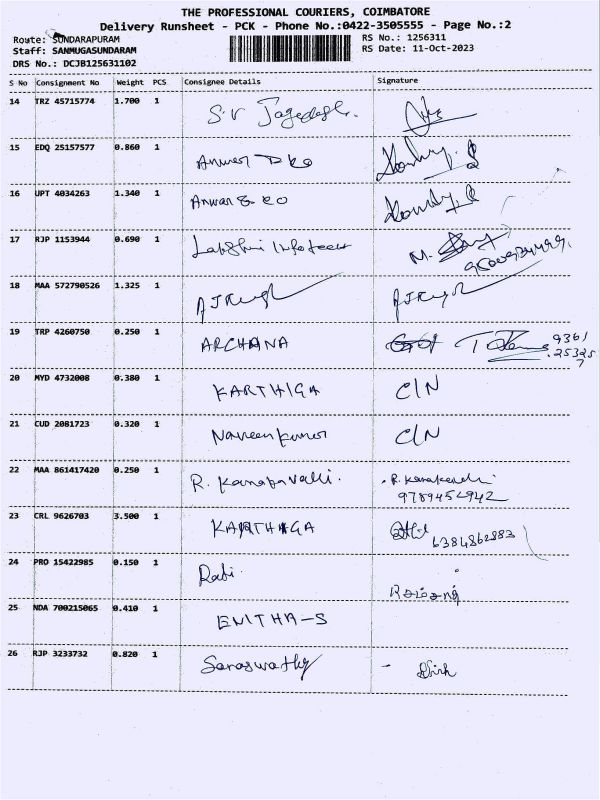 THE PROFESSIONAL COURIERS, COIMBATORE
Delivery Runsheet - PCK - Phone No.:0422-3505555 - Page No.:2
Route: SUNDARAPURAM RS No.: 1256311
Staff: SANMUGASUNDARAM RS Date: 11-Oct-2023
DRS No.: DCJB125631102
S No Consignment No Weight PCS Consignee Details Signature
14 TRZ 45715774 1.700 1 S.V
15 EDQ 25157577 0.860 1 Anwar
16 UPT 4034263 1.340 1 Anwar & co
17 RJP 1153944 0.690 1 Lakshmi Infotech M.
18 MAA 572790526 1.325 1
19 TRP 4260750 0.250 1 ARCHANA 9361
25325
7
20 MYD 4732008 0.380 1 KARTHIGA C/N
21 CUD 2081723 0.320 1 Naveen kumar C/N
22 MAA 861417420 0.250 1 R. Kanagavalli. R.
9789454942
23 CRL 9626703 3.500 1 KARTHIGA
6384862883
24 PRO 15422985 0.150 1 Rabi
25 NDA 700215065 0.410 1 ENITHA-S
26 RJP 3233732 0.820 1 Saraswathy